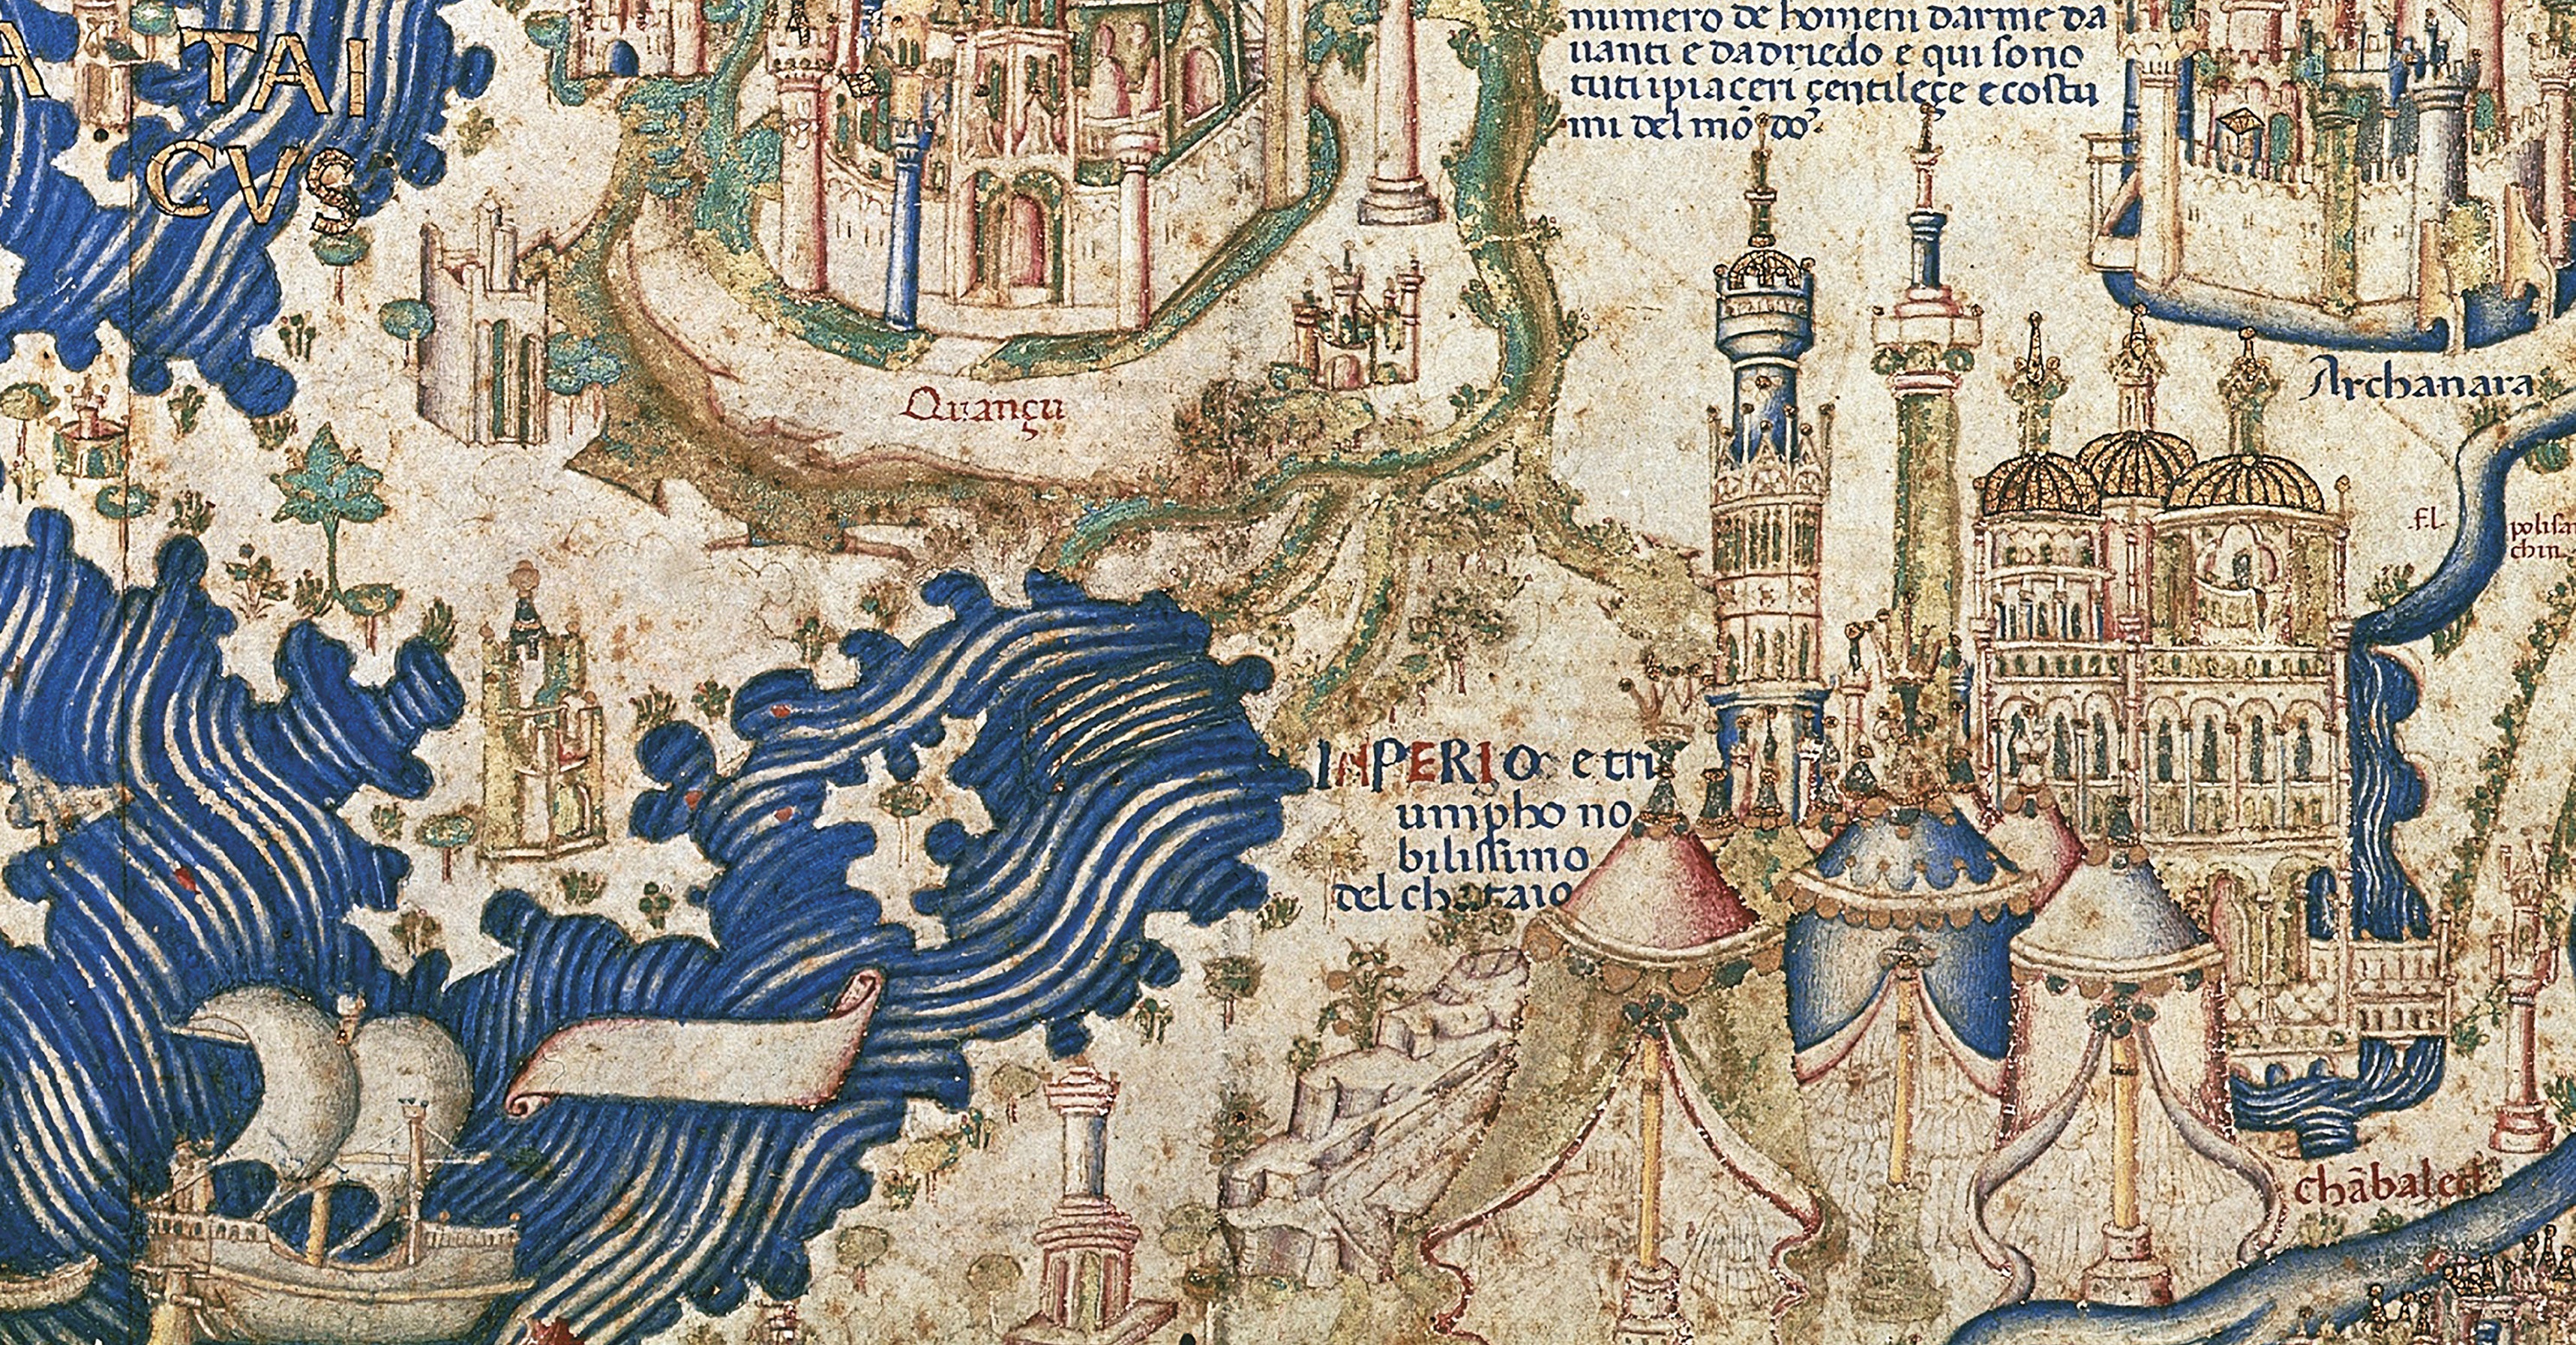 TAI
CVS
numero de homeni darme da
uanti e dadriedo e qui sono
tuti ipiaceri çentileçe e costu
mi del mō do
Quançu
Archanara
.f.l.
polisa
chin
INPERIO e tri
umpho no
bilissimo
del chataio
chābalech